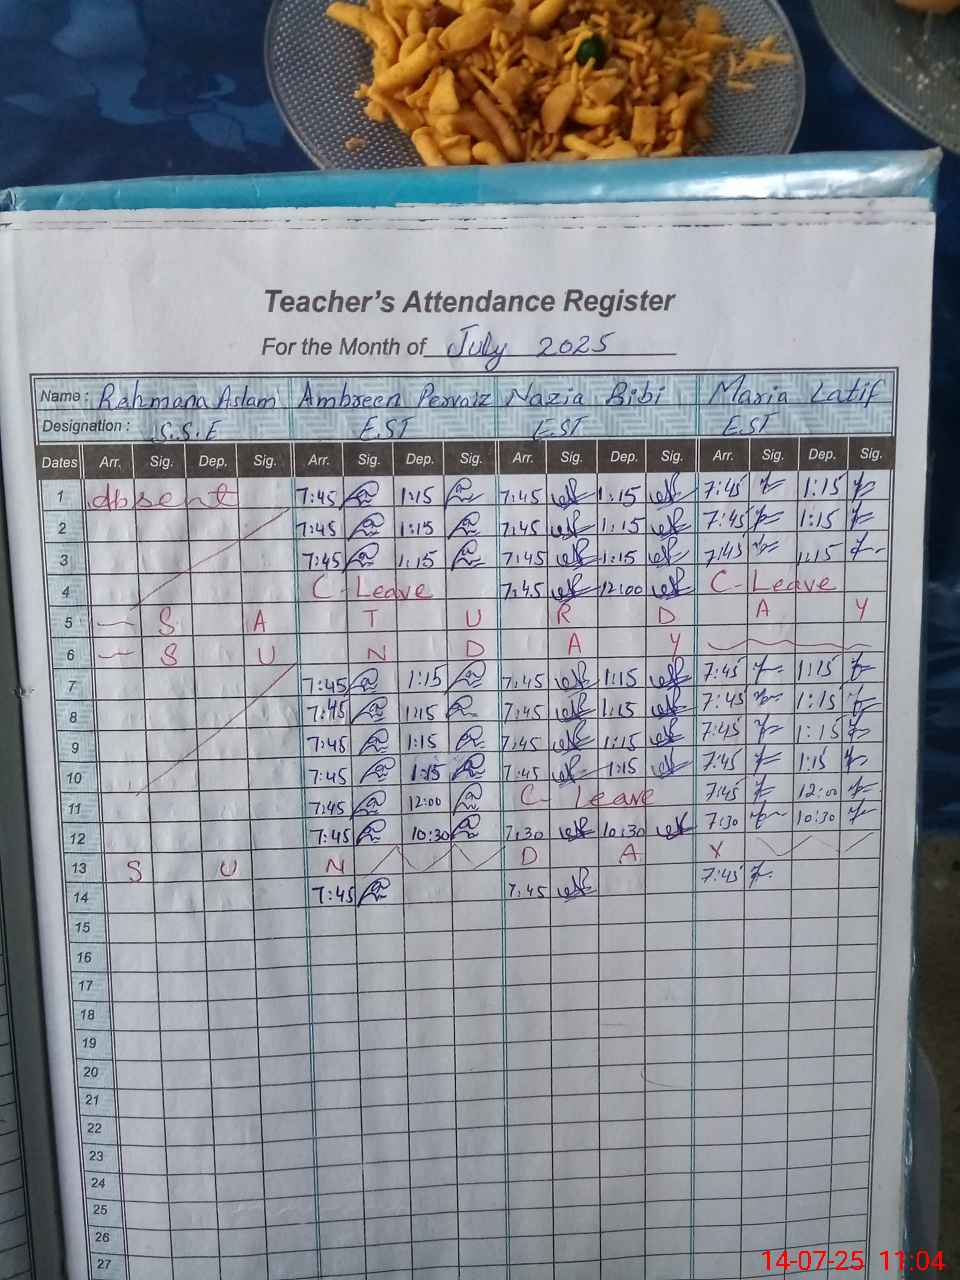 Teacher's Attendance Register
For the Month of July 2025
Name: Rahmana Aslam Ambreen Pervaiz Nazia Bibi Maria Latif
Designation: S.S.E EST EST EST
Dates Arr. Sig. Dep. Sig. Arr. Sig. Dep. Sig. Arr. Sig. Dep. Sig. Arr. Sig. Dep. Sig.
1 absent 7:45 1:15 7:45 1:15 7:45 1:15
2 7:45 1:15 7:45 1:15 7:45 1:15
3 7:45 1:15 7:45 1:15 7:45 1:15
4 C-Leave 7:45 12:00 C-Leave
5 S A T U R D A Y
6 S U N D A Y
7 7:45 1:15 7:45 1:15 7:45 1:15
8 7:45 1:15 7:45 1:15 7:45 1:15
9 7:45 1:15 7:45 1:15 7:45 1:15
10 7:45 1:15 7:45 1:15 7:45 1:15
11 7:45 12:00 C- Leave 7:45 12:00
12 7:45 10:30 7:30 10:30 7:30 10:30
13 S U N D A Y
14 7:45 7:45 7:45
15
16
17
18
19
20
21
22
23
24
25
26
27
14-07-25 11:04